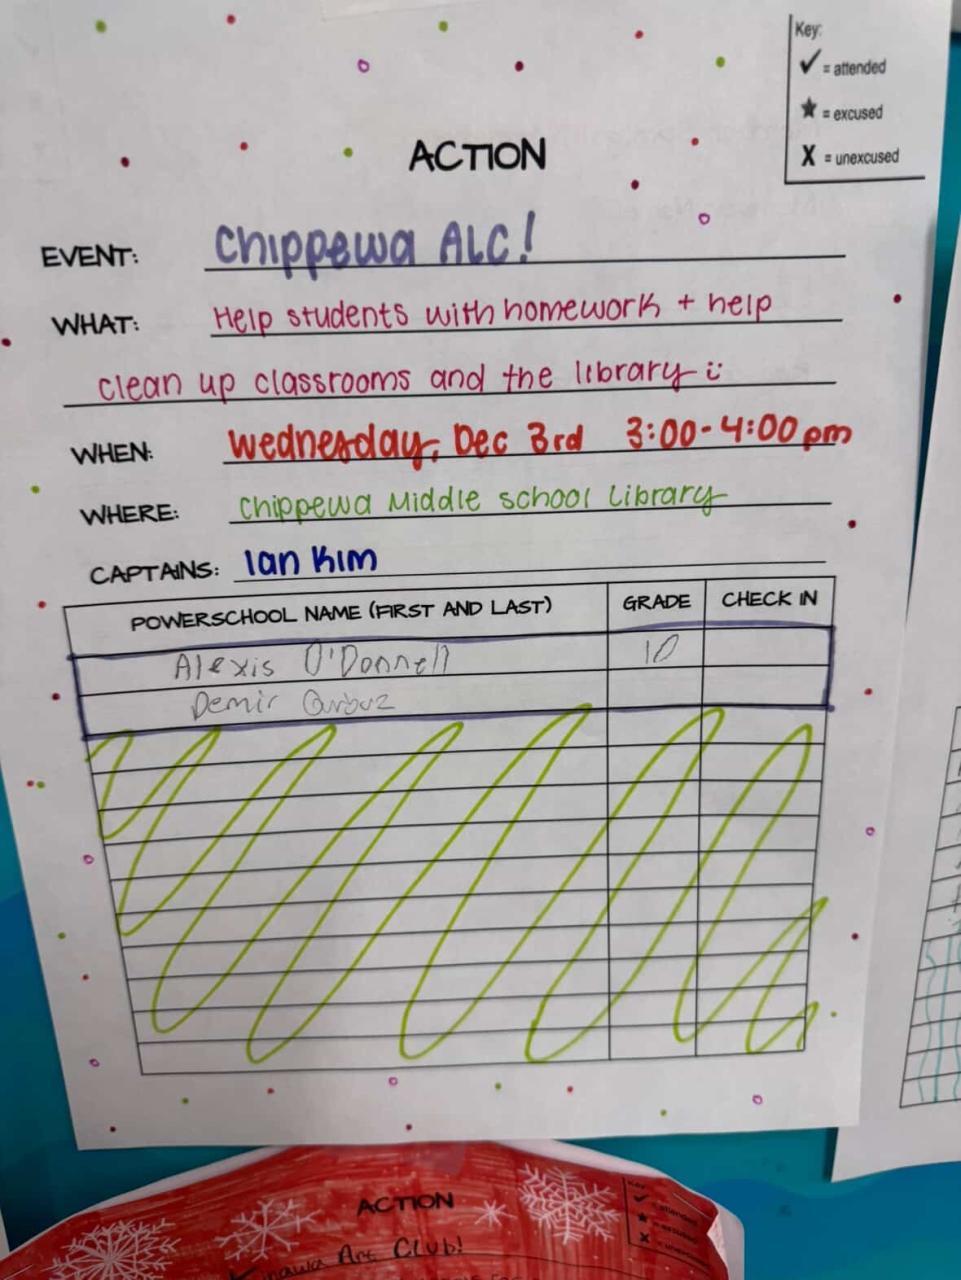 Key:
✓ = attended
★ = excused
X = unexcused
ACTION
EVENT: Chippewa ALC!
WHAT: Help students with homework + help
clean up classrooms and the library
WHEN: Wednesday, Dec 3rd 3:00-4:00 pm
WHERE: Chippewa Middle school Library
CAPTAINS: Ian Kim
POWERSCHOOL NAME (FIRST AND LAST) GRADE CHECK IN
Alexis O'Donnell 10
Demir
ACTION
Club!
Key: